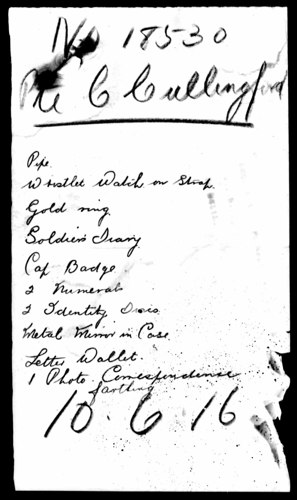 No 18530
Pte C Cullingford
Pipe
Wristlet Watch on Strap
Gold ring
Soldiers Diary
Cap Badge
2 Numerals
2 Identity Discs
Metal Mirror in Case
Letter Wallet.
1 Photo Correspondence
farthing
10.6.16